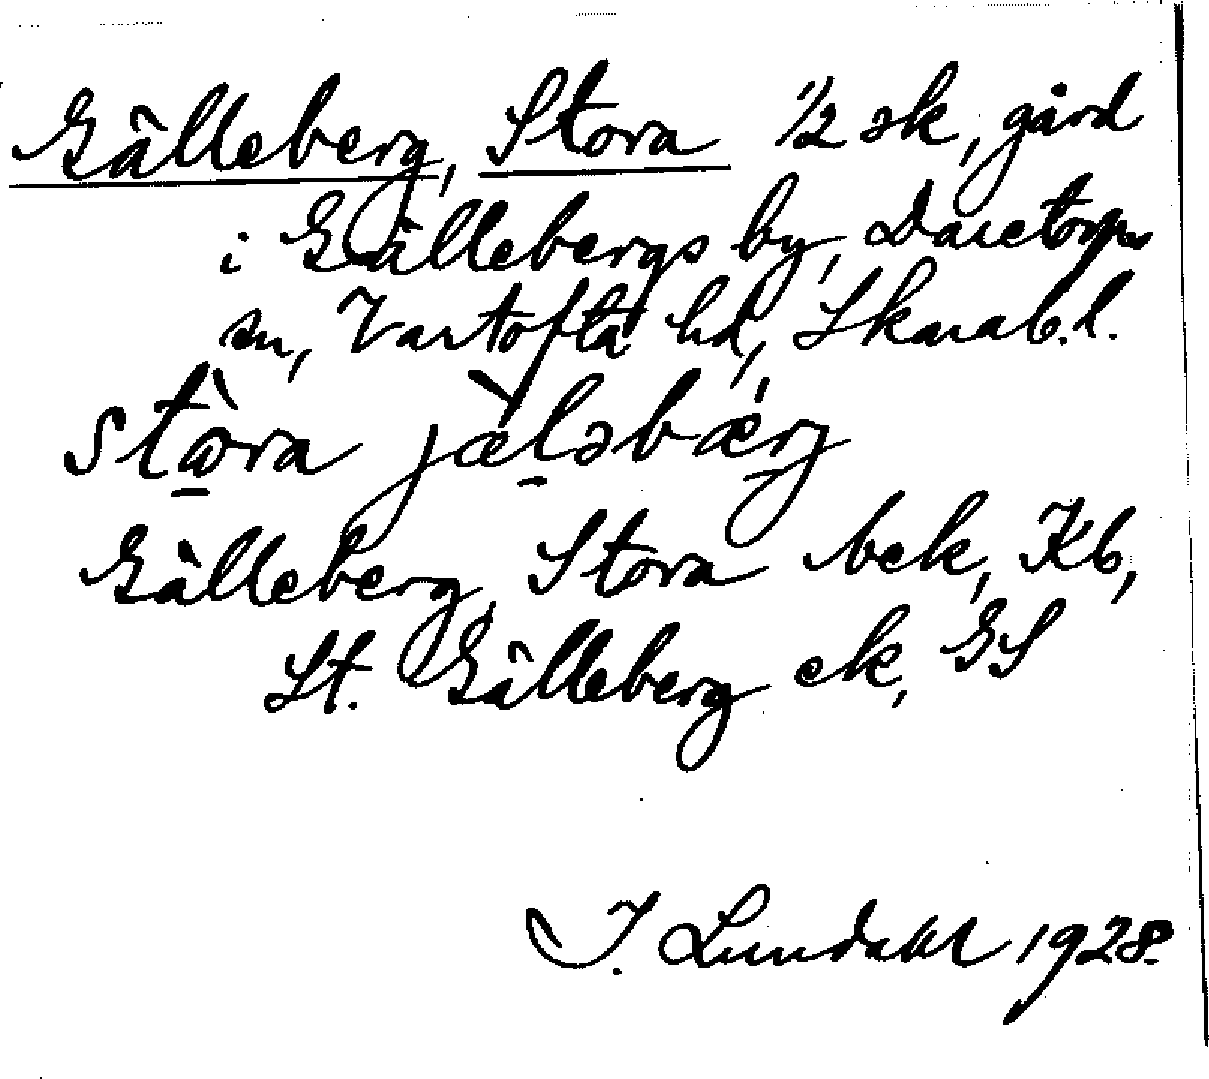 Gälleberg, Stora 1/2 sk, gård
i Gällebergs by, Daretorps
sn, Vartofta hd, Skarab. l.
stɷ̀ra jæ̀ḷəbǽrj
Gälleberg, Stora bek, Kb,
St. Gälleberg ek, GS
I. Lundahl 1928.